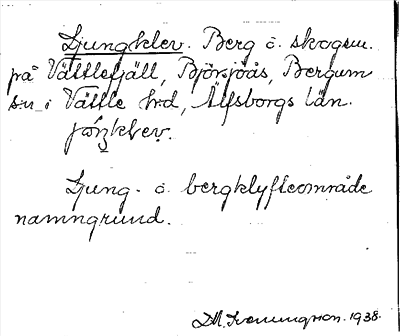 Ljungklev. Berg o. skogsm.
på Vättlefjäll, Björsjöås, Bergum
sn i Vättle hrd, Älfsborgs län.
Ljung- o bergklyfteområde
namngrund.
1938.